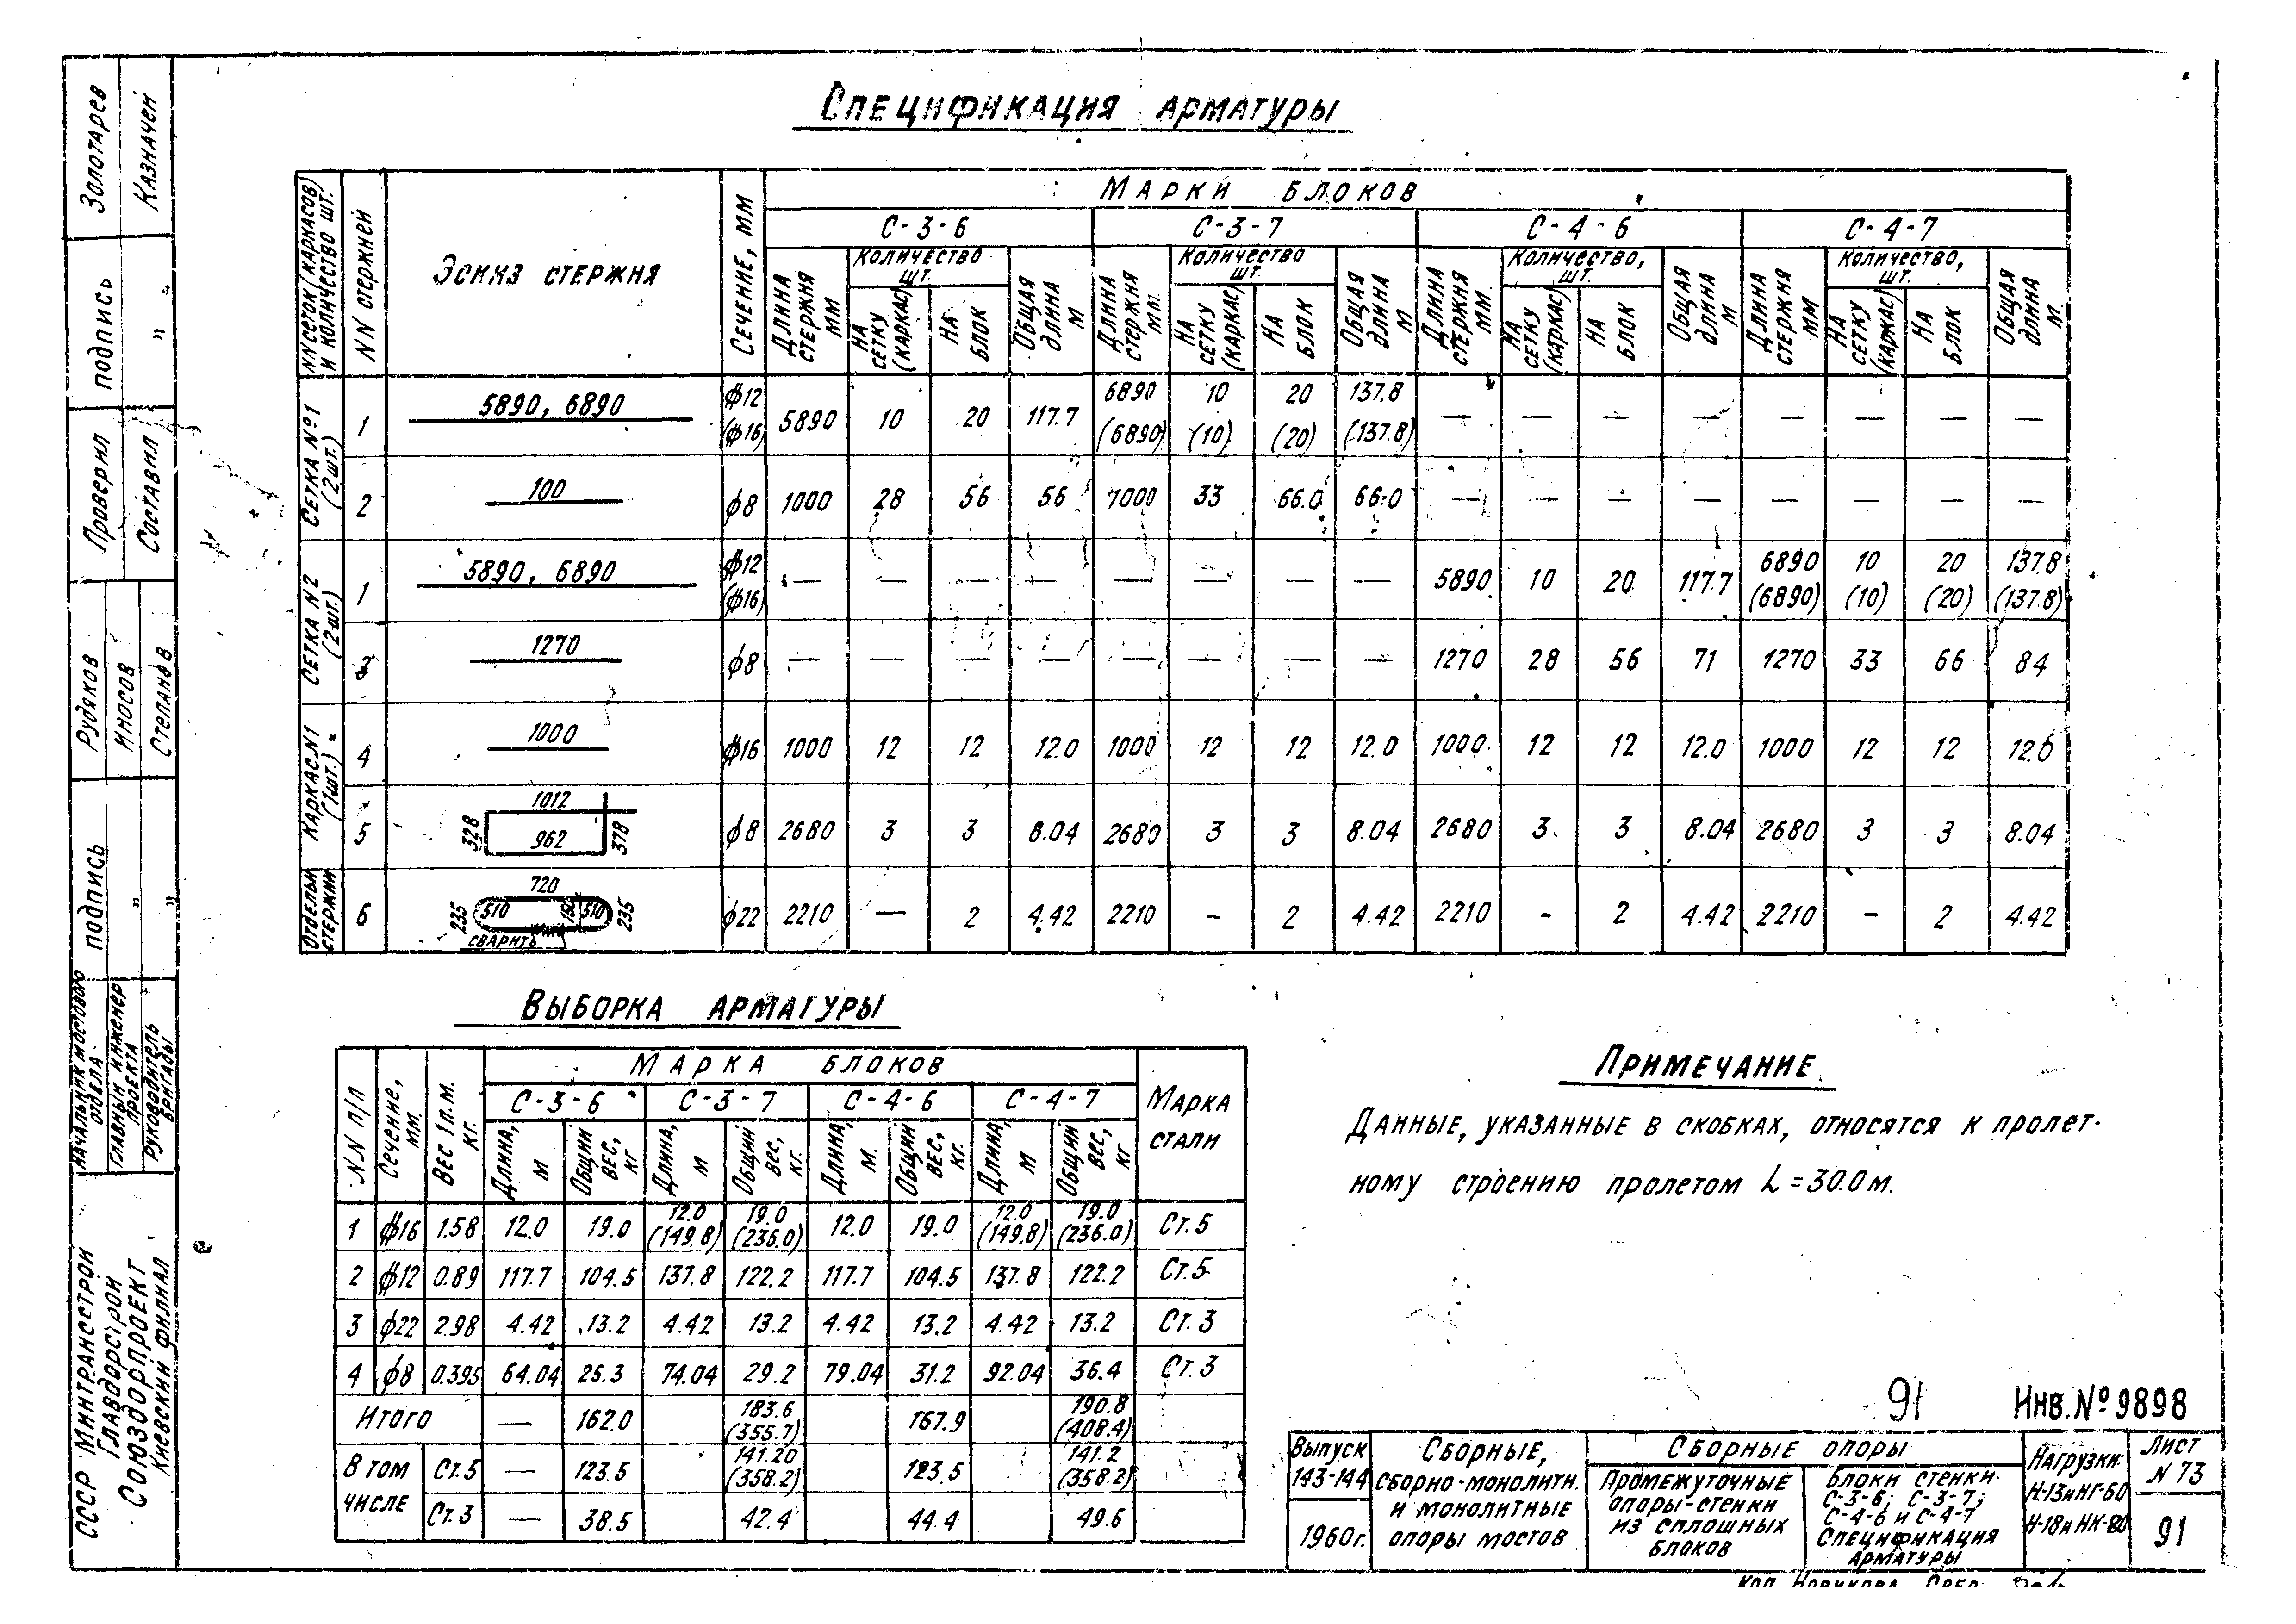 Спецификация арматуры
NN сеток (каркасов) и количество шт.
NN стержней
Эскиз стержня
Сечение, мм
Марки блоков
С-3-6 С-3-7 С-4-6 С-4-7
Длина стержня мм
Количество шт.
На сетку (каркас)
На блок
Общая длина м
Длина стержня мм.
Количество шт.
На сетку (каркас)
На блок
Общая длина м
Длина стержня мм.
Количество, шт.
На сетку (каркас)
На блок
Общая длина м
Длина стержня мм
Количество, шт.
На сетку (каркас)
На блок
Общая длина м.
Сетка №1 (2 шт.)
1 5890, 6890 ф12 (ф16) 5890 10 20 117.7 6890 (6890) 10 (10) 20 (20) 137.8 (137.8) — — — — — — — —
2 100 ф8 1000 28 56 56 1000 33 66.0 66.0 — — — — — — — —
Сетка N2 (2 шт.)
1 5890, 6890 ф12 (ф16) — — — — — — — — 5890 10 20 117.7 6890 (6890) 10 (10) 20 (20) 137.8 (137.8)
3 1270 ф8 — — — — — — — — 1270 28 56 71 1270 33 66 84
Каркас N1 (1 шт.)
4 1000 ф16 1000 12 12 12.0 1000 12 12 12.0 1000 12 12 12.0 1000 12 12 12.0
5 1012 328 962 378 ф8 2680 3 3 8.04 2680 3 3 8.04 2680 3 3 8.04 2680 3 3 8.04
Отдельн стержни
6 720 235 510 150 510 235 сварить ф22 2210 — 2 4.42 2210 - 2 4.42 2210 - 2 4.42 2210 - 2 4.42
Выборка арматуры
NN п/п
Сечение, мм.
Вес 1 п.м. кг.
Марка блоков
Марка стали
С-3-6 С-3-7 С-4-6 С-4-7
Длина, м
Общий вес, кг
Длина, м
Общий вес, кг.
Длина, м.
Общий вес, кг.
Длина, м
Общий вес, кг
1 ф16 1.58 12.0 19.0 12.0 (149.8) 19.0 (236.0) 12.0 19.0 12.0 (149.8) 19.0 (236.0) Ст.5
2 ф12 0.89 117.7 104.5 137.8 122.2 117.7 104.5 137.8 122.2 Ст.5
3 ф22 2.98 4.42 13.2 4.42 13.2 4.42 13.2 4.42 13.2 Ст.3
4 ф8 0.395 64.04 25.3 74.04 29.2 79.04 31.2 92.04 36.4 Ст.3
Итого — 162.0 183.6 (355.7) 167.9 190.8 (408.4)
В том числе
Ст.5 — 123.5 141.20 (358.2) 123.5 141.2 (358.2)
Ст.3 — 38.5 42.4 44.4 49.6
Примечание
Данные, указанные в скобках, относятся к пролет-
ному строению пролетом L = 30.0 м.
91 Инв. № 9898
Выпуск 143-144
1960г.
Сборные,
сборно-монолитн.
и монолитные
опоры мостов
Сборные опоры
Промежуточные
опоры-стенки
из сплошных
блоков
Блоки стенки
С-3-6; С-3-7;
С-4-6 и С-4-7
Спецификация
арматуры
Нагрузки:
Н-13 и НГ-60
Н-18 и НК-80
Лист
N 73
91
Коп. Новикова
Золотарев
Казначей
подпись
" "
Проверил
Составил
Рудяков
Иносов
подпись
" "
Начальник мостового отдела
Главный инженер проекта
Руководитель бригады
СССР Минтрансстрой
Главдорстрой
Союздорпроект
Киевский филиал